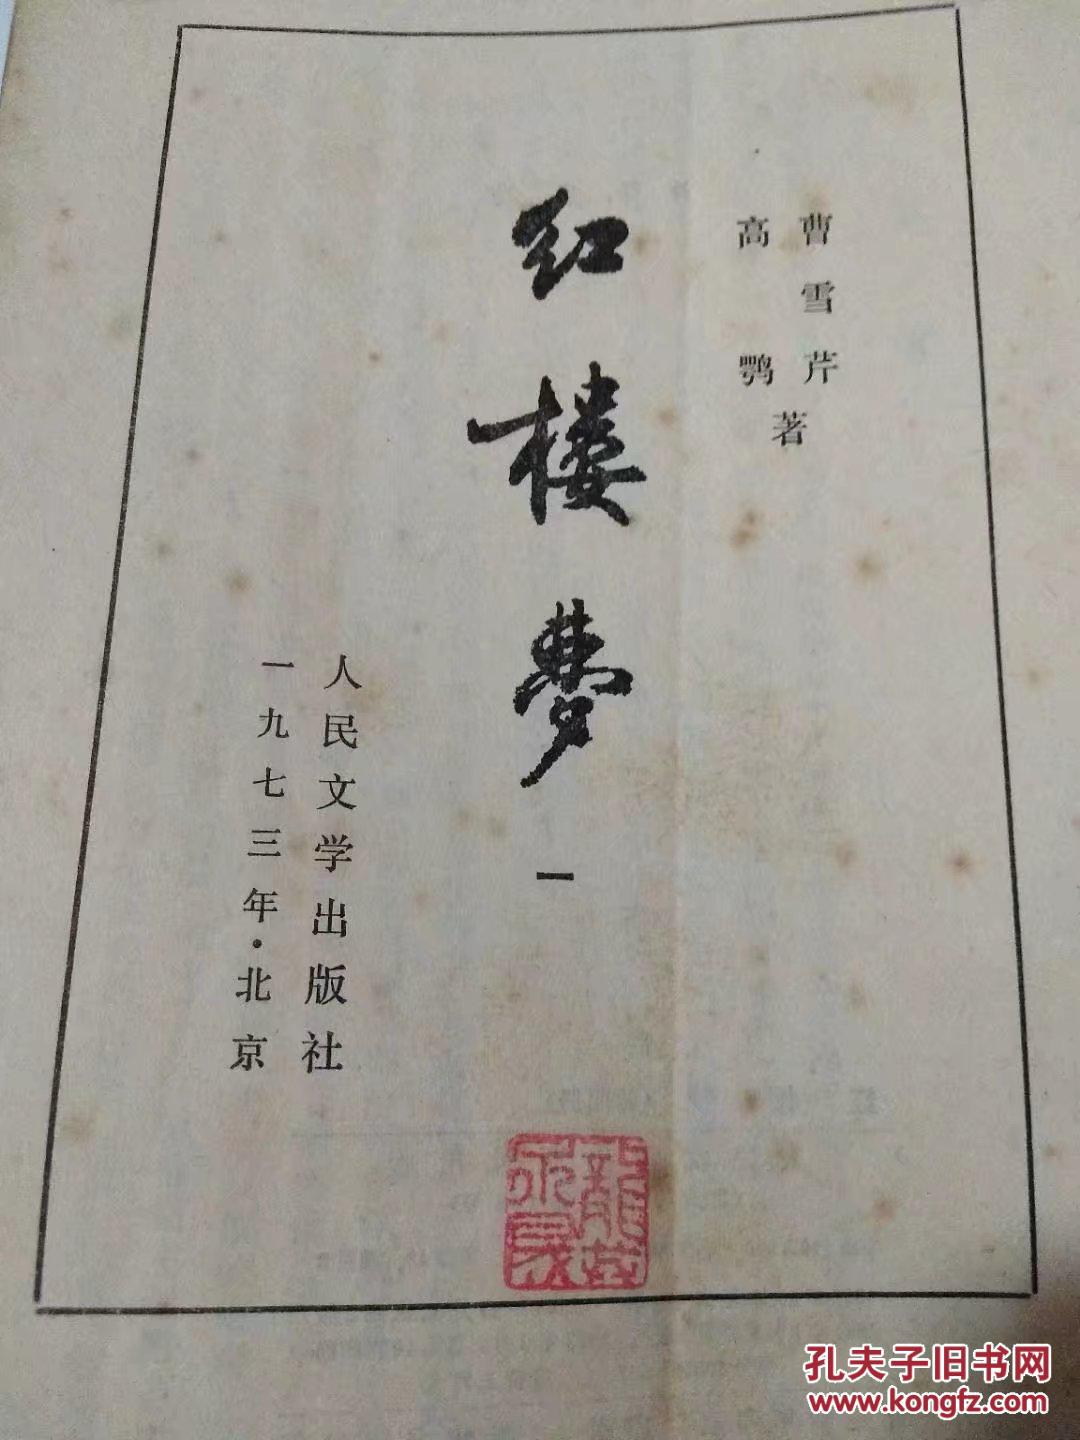 曹雪芹
高鹗
著
红楼梦
一
人民文学出版社
一九七三年·北京
孔夫子旧书网
www.kongfz.com